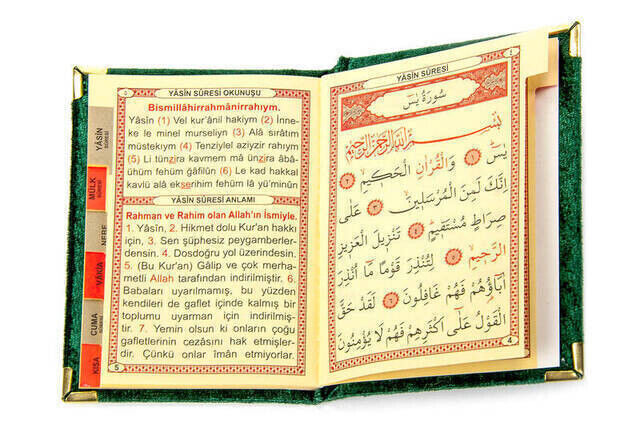 YÂSİN SÛRESİ OKUNUŞU
Bismillâhirrahmânirrahıym.
Yâsîn (1) Vel kur'ânil hakiym (2) İnne-
ke le minel murseliyn (3) Alâ sırâtim
müstekıym (4) Tenziylel aziyzir rahıym
(5) Li tünzira kavmem mâ ünzira âbâ-
ühüm fehüm ğâfilûn (6) Le kad hakkal
kavlü alâ ekserihim fehüm lâ yü'minûn
YÂSİN SÛRESİ ANLAMI
Rahman ve Rahim olan Allah'ın İsmiyle.
1. Yâsîn, 2. Hikmet dolu Kur'an hakkı
için, 3. Sen şüphesiz peygamberler-
densin. 4. Dosdoğru yol üzerindesin.
5. (Bu Kur'an) Gâlip ve çok merha-
metli Allah tarafından indirilmiştir. 6.
Babaları uyarılmamış, bu yüzden
kendileri de gaflet içinde kalmış bir
toplumu uyarman için indirilmiş-
tir. 7. Yemin olsun ki onların çoğu
gafletlerinin cezasını hak etmişler-
dir. Çünkü onlar îmân etmiyorlar.
5
YÂSİN
SÛRESİ
MÜLK
SÛRESİ
NEBE
VÂKIA
CUMA
KISA
٤
YÂSİN SÛRESİ
سُورَةُ يٰسٓ
بِسْمِ اللّٰهِ الرَّحْمٰنِ الرَّحِيمِ
يٰسٓ ۝١ وَالْقُرْاٰنِ الْحَكِيمِ ۝٢
اِنَّكَ لَمِنَ الْمُرْسَلِينَ ۝٣ عَلٰى
صِرَاطٍ مُسْتَقِيمٍ ۝٤ تَنْزِيلَ الْعَزِيزِ
الرَّحِيمِ ۝٥ لِتُنْذِرَ قَوْمًا مَٓا اُنْذِرَ
اٰبَٓاؤُهُمْ فَهُمْ غَافِلُونَ ۝٦ لَقَدْ حَقَّ
الْقَوْلُ عَلٰٓى اَكْثَرِهِمْ فَهُمْ لَا يُؤْمِنُونَ
4